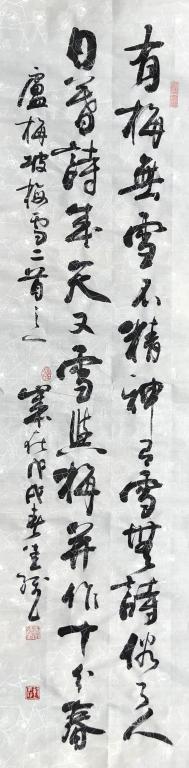 有梅無雪不精神有雪無詩俗了人
日暮詩成天又雪與梅並作十分春
盧梅坡梅雪二首之一
歲在戊戌春